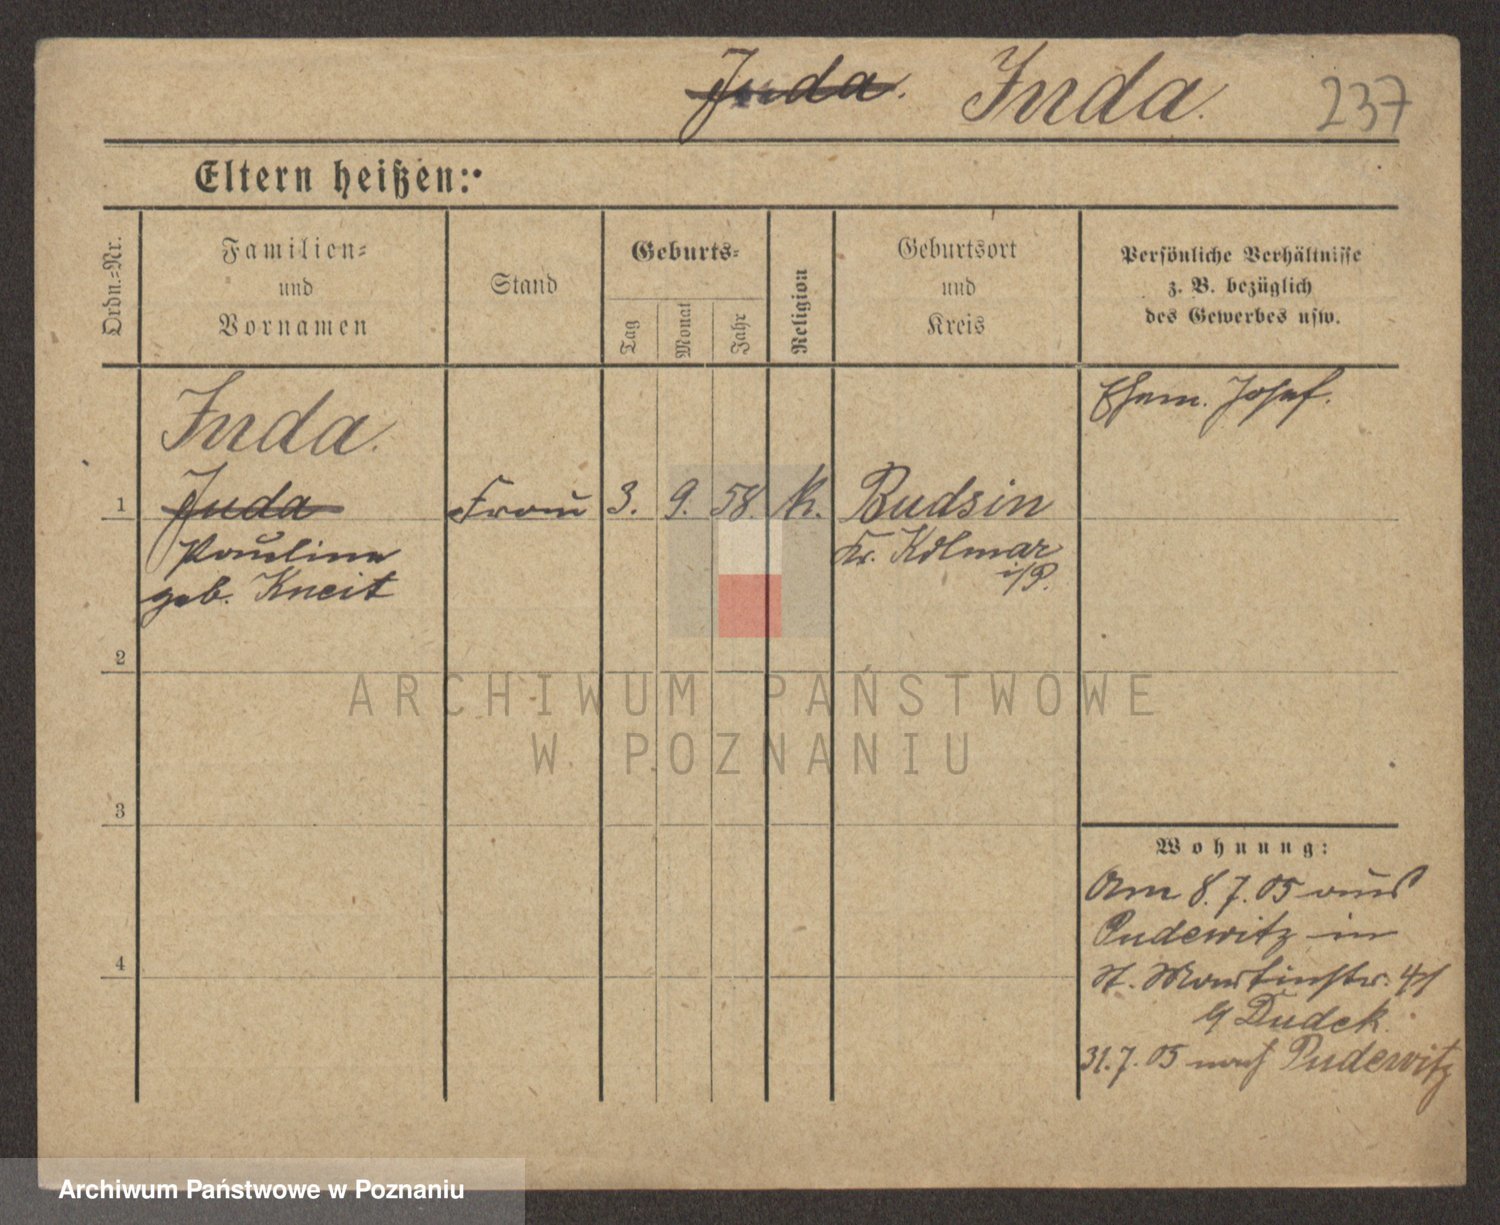 Juda. Inda. 237
Eltern heißen:
Ordn.=Nr.
Familien=
und
Vornamen
Stand
Geburts=
Tag
Monat
Jahr
Religion
Geburtsort
und
Kreis
Persönliche Verhältnisse
z. B. bezüglich
des Gewerbes usw.
Inda. Ehem. Josef.
1 Juda Frau 3. 9. 58. k. Budsin
Pauline Kr. Kolmar
i/P.
geb. Kneit
2
ARCHIWUM PAŃSTWOWE
W POZNANIU
3
Wohnung:
Am 8.7.05 aus
Pudewitz in
4
St. Martinstr.
Dudek
31.7.05 nach Pudewitz
Archiwum Państwowe w Poznaniu